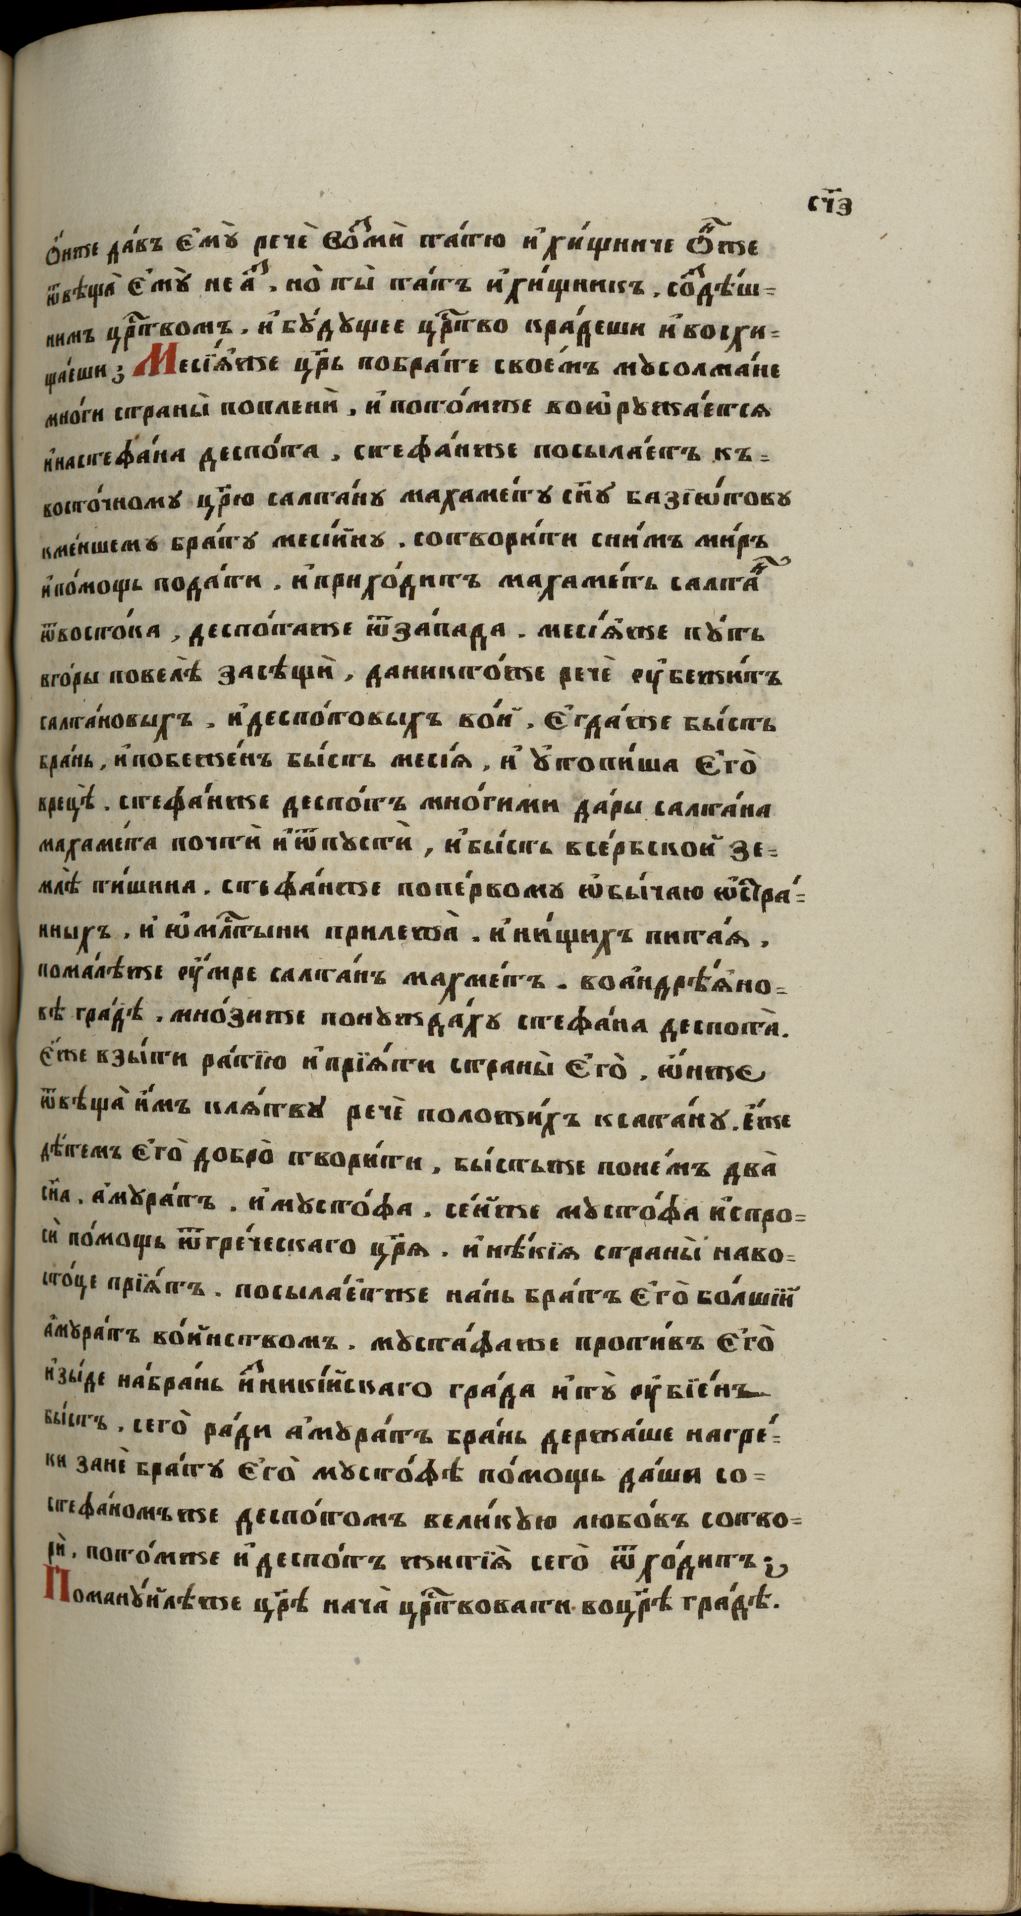 сч҃з
ѻ҆́нже да́въ є҆мꙋ̀ речѐ во́ⷥмѝ та́тю и҆ хи́щниче ѻ҆́ⷩже
ѿвѣща̀ є҆мꙋ̀ не а́ⷥ, но̀ ты̀ та́тъ и҆ хи́щникъ, соⷥдѣ́ш=
нимъ црⷭ҇твомъ, и҆ бꙋ́дꙋщее црⷭ҇тво кра́деши и҆ восхи=
ща́еши ; Месїѧ́же цр҃ь побра́те свое́мъ мꙋсолма́не
мно́ги страны̀ попленѝ, и҆ пото́мже воѡ҆рꙋжа́етсѧ
и҆настефа́на деспо́та, стефа́нже посыла́етъ къ=
восто́чномꙋ цр҃ю салта́нꙋ махаме́тꙋ сн҃ꙋ базїѡ́товꙋ
кме́ншемꙋ бра́тꙋ месі́йнꙋ, сотвори́ти сни́мъ ми́ръ
и҆по́мощь пода́ти, и҆ прихо́дитъ махаме́тъ салта́ⷩ
ѿвосто́ка, деспо́тже ѿза́пада, месі́ѧже пꙋ́ть
вго́ры повелѣ̀ засѣщѝ, даникто́же речѐ ᲂу҆бежи́тъ
салта́новыхъ, и҆ деспо́товыхъ во́й, є҆гда́же бы́сть
бра́нь, и҆побеже́нъ бы́стъ месі́ѧ, и҆ ᲂу҆топи́ша є҆го̀
врецѣ̀, стефа́нже деспо́тъ мно́гими да́ры салта́на
махаме́та почтѝ и҆ ѿпꙋстѝ, и҆ бы́сть все́рбской зе=
млѣ̀ ти́шина, стефа́нже попе́рвомꙋ ѡ҆бы́чаю ѡ҆стра́=
нныхъ, и҆ ѡ҆млⷭ҇тыни прилежа̀, и҆ ни́щихъ пита́ѧ,
пома́лѣже ᲂу҆́мре салта́нъ махме́тъ, воа҆ндрѣ́ѧно=
вѣ гра́дѣ, мно́зиже понꙋжда́хꙋ стефа́на деспота̀.
є҆́же взы́ти ра́тїю и҆ прїѧ́ти страны̀ є҆го̀, ѡ҆́нже
ѿвѣща̀ и҆́мъ клѧ́твꙋ речѐ положи́хъ ксата́нꙋ, є҆́же
дѣ́темъ є҆го̀ добро̀ твори́ти, бы́стьже поне́мъ два̀
сн҃а, а҆мꙋра́тъ, и҆ мꙋсто́фа, се́йже мꙋсто́фа и҆спро=
сѝ по́мощь ѿгре́ческаго цр҃ѧ, и҆ нѣ́кїѧ страны̀ наво=
сто́це прїѧ́тъ, посыла́етже на́нь бра́тъ є҆го̀ бо́лшїй
а҆мꙋра́тъ во́йнствомъ, мꙋста́фаже проти́въ є҆го̀
и҆зы́де на́брань и҆́ⷥники́йскаго гра́да и҆ тꙋ̀ ᲂу҆бїе́нъ
бы́стъ, сего̀ ра́ди а҆мꙋра́тъ бра́нь держа́ше нагре́=
ки занѐ бра́тꙋ є҆го̀ мꙋсто́фѣ по́мощь да́ша со=
стефа́номъже деспо́томъ вели́кꙋю любо́вь сотво=
рѝ, пото́мже и҆ деспо́тъ житїѧ̀ сего̀ ѿхо́дитъ ;
Помандꙋ́йлѣже цр҃ѣ нача̀ црⷭ҇твовати воцр҃ѣ гра́дѣ.